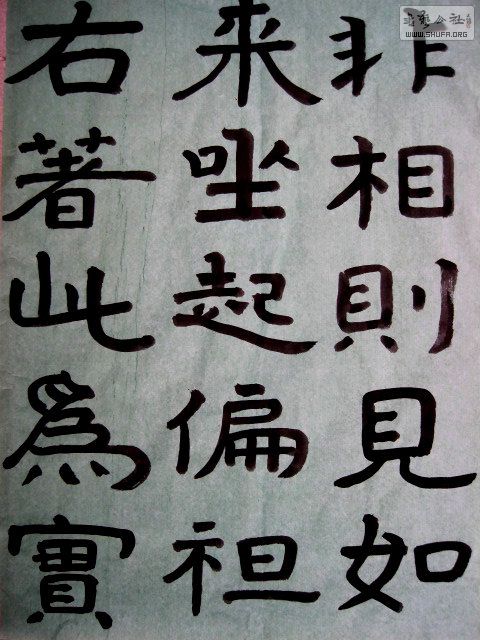 非相則見如
来坐起偏袒
右著此爲實
公社
WWW.SHUFA.ORG